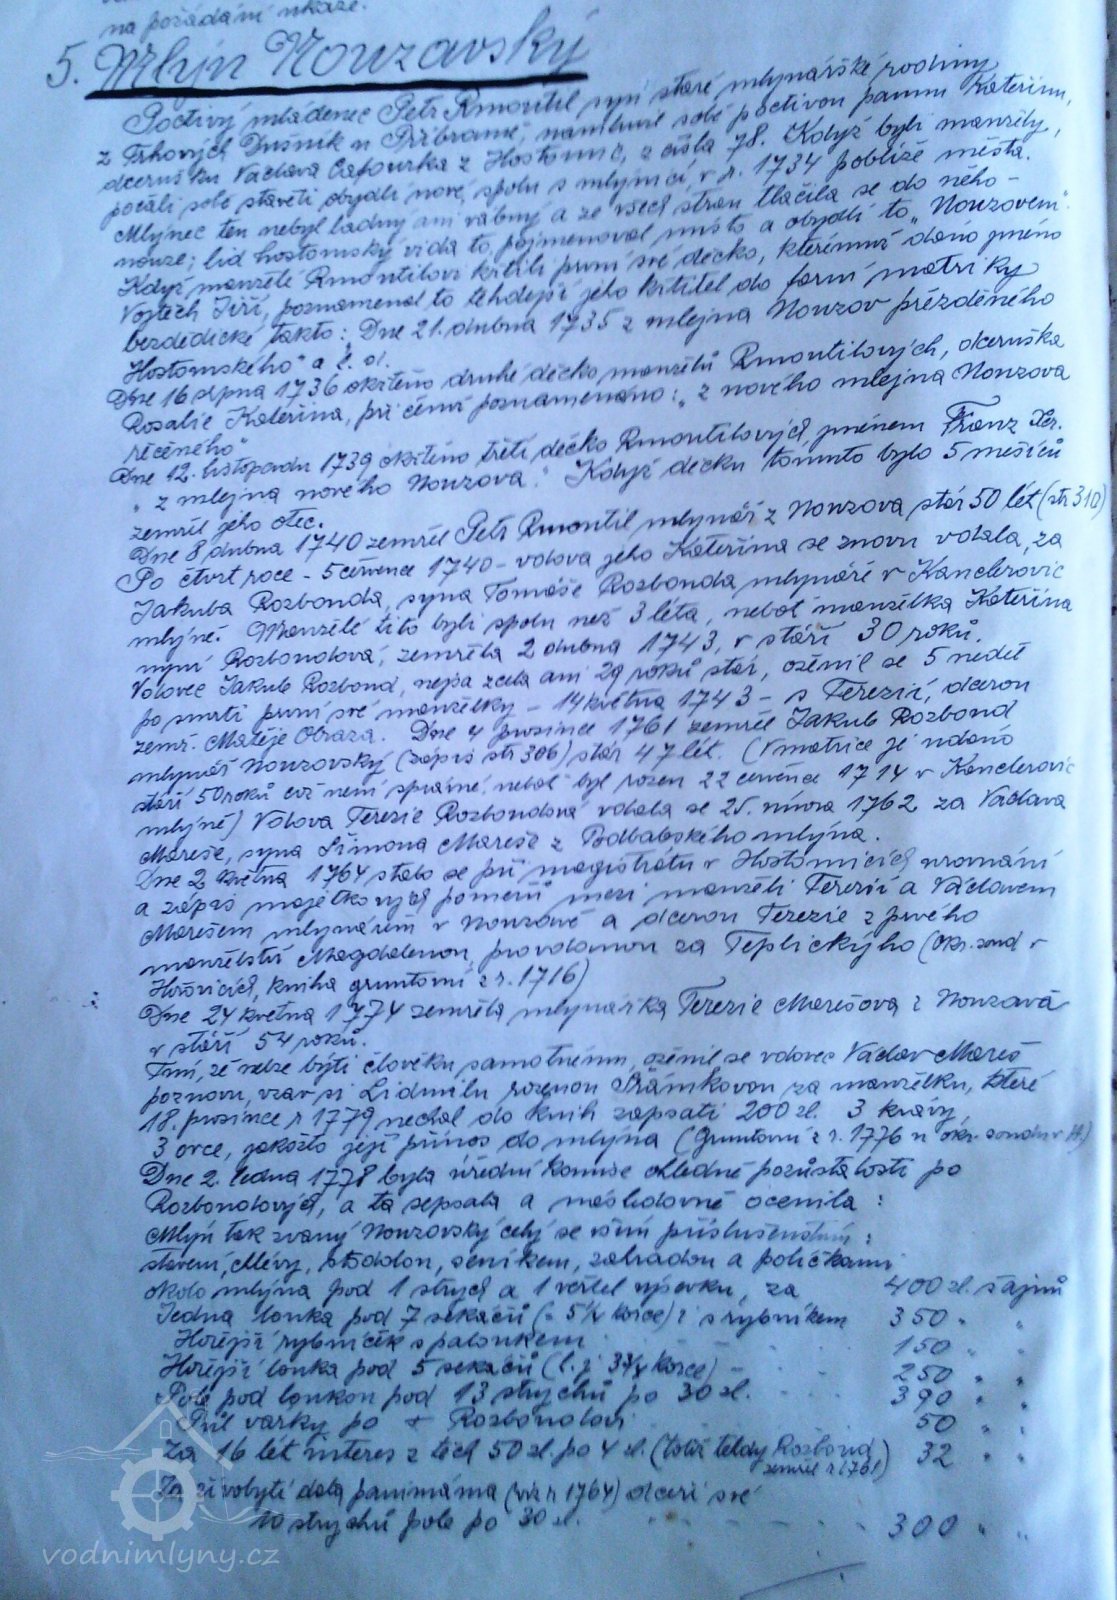 na požádání ukáže.
5. Mlýn Nouzavský
Poctivý mládenec Petr Rmoutil syn staré mlynářské rodiny
z Trhových Dušník u Příbramě, namluvil sobě poctivou pannu Kateřinu,
dcerušku Václava Čapourka z Hostomic, z čísla 78. Když byli manžely,
počali sobě stavěti obydlí nové, spolu s mlýnicí, v r. 1734 poblíže města.
Mlýnec ten nebyl ladný ani vábný a ze všech stran tlačila se do něho -
nouze; lid hostomský vida to, pojmenoval místo a obydlí to „Nouzovem".
Když manželé Rmoutilovi křtili první své děcko, kterémuž dáno jméno
Vojtěch Jiří, poznamenal to tehdejší jeho křtitel do farní matriky
bezdědické takto: „Dne 21. dubna 1735 z mlejna Nouzov přezděného
Hostomského" a t. d.
Dne 16 srpna 1736 okřtěno druhé děcko manželů Rmoutilových, dceruška
Rosalie Kateřina, při čemž poznamenáno: „z nového mlejna Nouzova
řečeného"
Dne 12. listopadu 1739 okřtěno třetí děcko Rmoutilových jménem Franz Xer.
„z mlejna nového Nouzova." Když děcku tomuto bylo 5 měsíců
zemřel jeho otec.
Dne 8 dubna 1740 zemřel Petr Rmoutil mlynář z Nouzova stár 50 lét (str 310)
Po čtvrt roce - 5 července 1740 - vdova jeho Kateřina se znovu vdala, za
Jakuba Rozbonda, syna Tomáše Rozbonda mlynáře v Kanclerovic
mlýně. Manželé tito byli spolu než 3 léta, neboť manželka Kateřina
nyní Rozbondová, zemřela 2 dubna 1743, v stáří 30 roků.
Vdovec Jakub Rozbond, nejsa zcela ani 29 roků stár, oženil se 5 neděl
po smrti první své manželky - 14 května 1743 - s Terezií, dcerou
zemř. Matěje Obraza. Dne 4 prosince 1761 zemřel Jakub Rozbond
mlynář Nouzovský (zápis str 306) stár 47 lét. (V matrice je udáno
stáří 50 roků což není správné, neboť byl rozen 22 července 1714 v Kanclerovic
mlýně) Vdova Terezie Rozbondová vdala se 25. února 1762 za Václava
Mareše, syna Šimona Mareše z Podbabského mlýna.
Dne 2 května 1764 stalo se při magistrátu v Hostomicích srovnání
a zápis majetkových poměrů mezi manželi Terezií a Václavem
Marešem mlynářem v Nouzově a dcerou Terezie z prvého
manželství Magdalenou, provdanou za Teplickýho (okr. soud v
Hořovicích, kniha gruntovní z r. 1716)
Dne 24 května 1774 zemřela mlynářka Terezie Marešova z Nouzova
v stáří 54 roků.
Tím, že nelze býti člověku samotnému, oženil se vdovec Václav Mareš
poznovu, vzav si Lidmilu rozenou Šrámkovou za manželku, které
18. prosince r 1779 nechal do knih zapsati 200 zl. 3 krávy,
3 ovce, jakožto její přínos do mlýna (Gruntovní z r. 1776 u okr. soudu v H.)
Dne 2. ledna 1778 byla úřední komise ohledně pozůstalosti po
Rozbondových, a ta sepsala a následovně ocenila :
Mlýn tak zvaný Nouzovský celý se vším příslušenstvím :
stavení, chlévy, stodolou, seníkem, zahradou a políčkami
okolo mlýna pod 1 strych a 1 věrtel výsevku, za 400 zl. šajnů
Jedna louka pod 7 sekáčů (= 5¼ korce) i s rybníkem 350 " "
Hořejší rybníček s paloukem . . . 150 " "
Hořejší louka pod 5 sekáčů (t. j. 3¾ korce) - . . 250 " "
Pole pod loukou pod 13 strychů po 30 zl. . . . 390 " "
Půl várky po + Rozbondovi . . . 50 " "
Za 16 lét interes z těch 50 zl. po 4 zl. (totiž tehdy Rozbond zemřel r. 1761) 32 " "
dala panímáma (viz r 1764) dceři své
10 strychů pole po 30 zl. . . . . 300 " "
vodnimlyny.cz